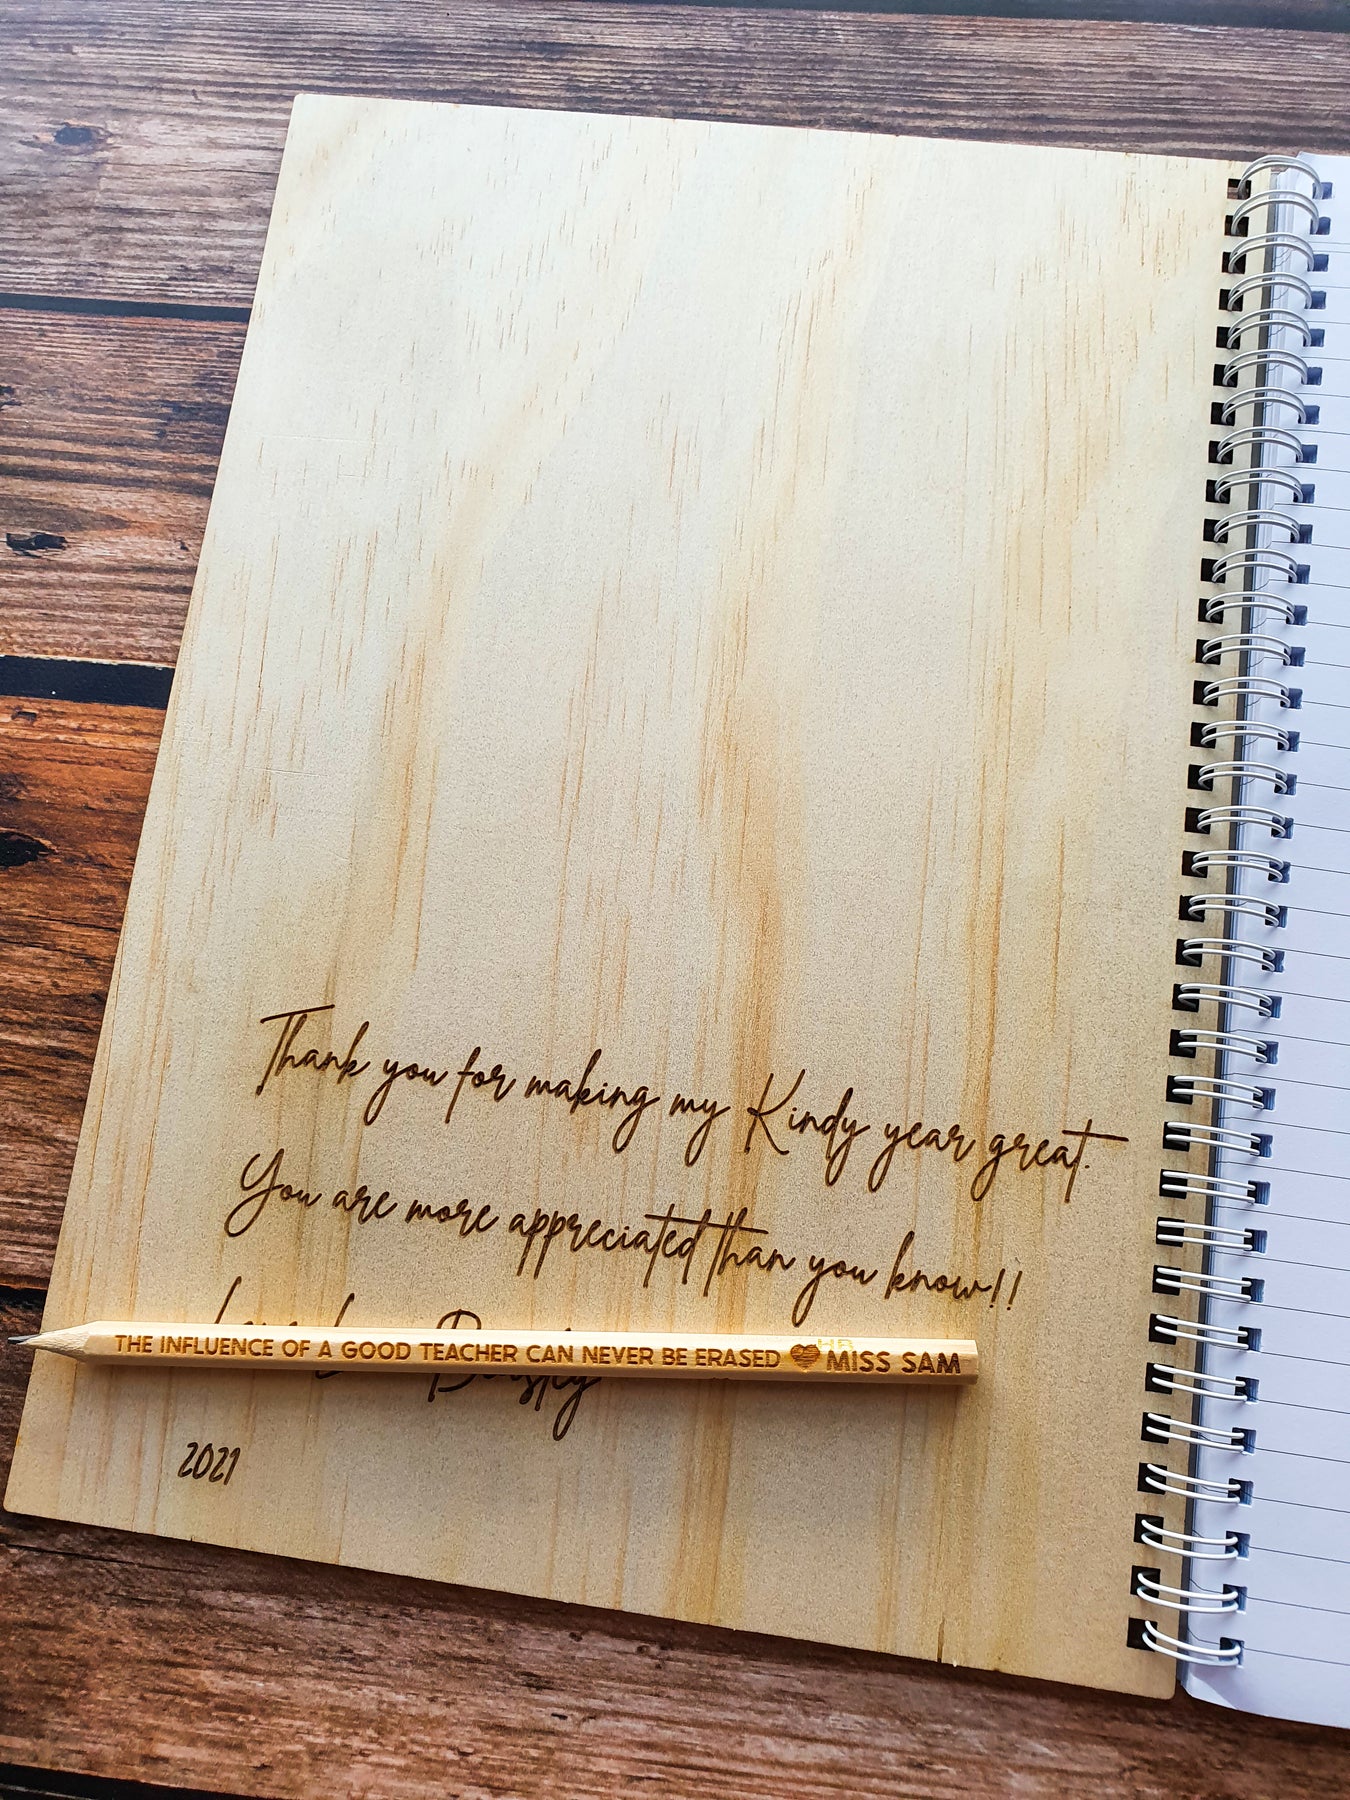 Thank you for making my Kindy year great.
You are more appreciated than you know!!
THE INFLUENCE OF A GOOD TEACHER CAN NEVER BE ERASED ♥ MISS SAM
HB
2021